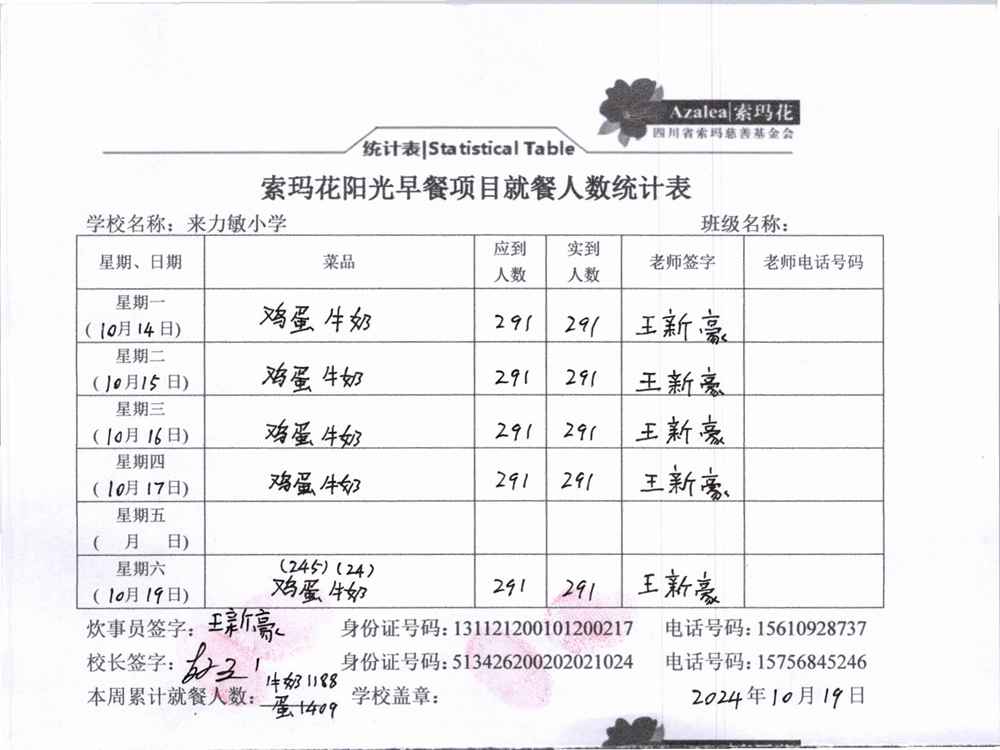 Azalea|索玛花
四川省索玛慈善基金会
统计表|Statistical Table
索玛花阳光早餐项目就餐人数统计表
学校名称：来力敏小学 班级名称：
星期、日期 菜品 应到人数 实到人数 老师签字 老师电话号码
星期一 (10月14日) 鸡蛋 牛奶 291 291 王新豪
星期二 (10月15日) 鸡蛋 牛奶 291 291 王新豪
星期三 (10月16日) 鸡蛋 牛奶 291 291 王新豪
星期四 (10月17日) 鸡蛋 牛奶 291 291 王新豪
星期五 ( 月 日)
星期六 (10月19日) (245) (24) 鸡蛋 牛奶 291 291 王新豪
炊事员签字：王新豪 身份证号码：131121200101200217 电话号码：15610928737
校长签字： 身份证号码：513426200202021024 电话号码：15756845246
本周累计就餐人数：牛奶1188 蛋1409 学校盖章： 2024年10月19日